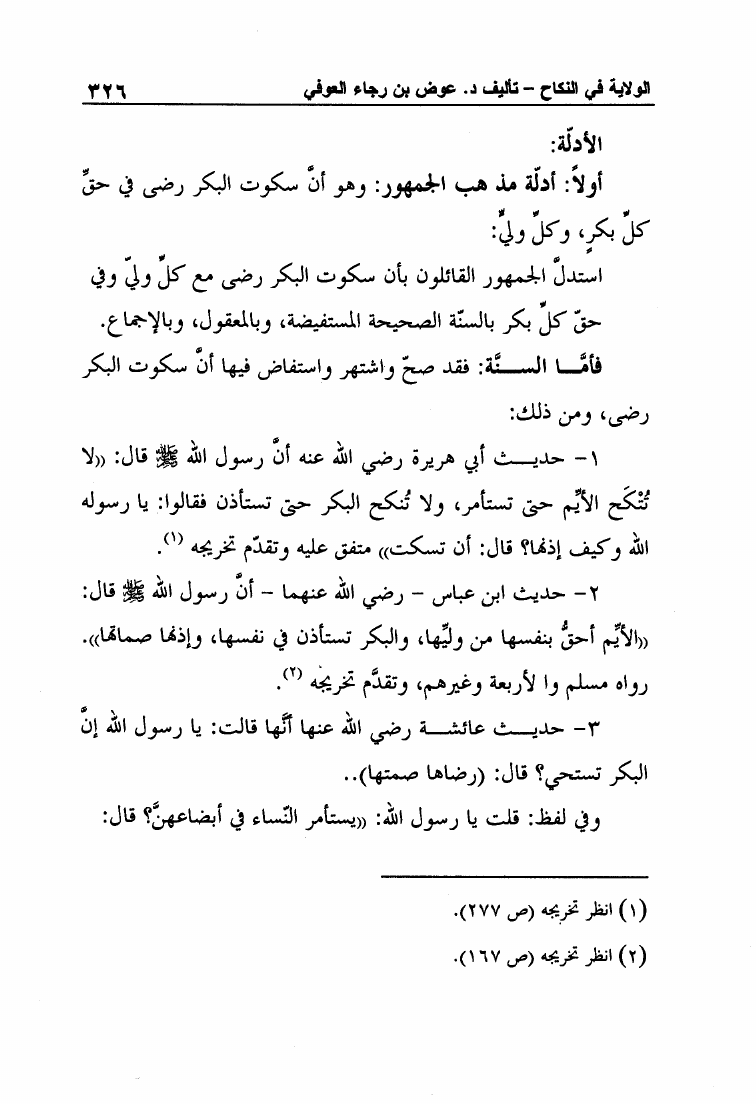 الولاية في النكاح – تأليف د. عوض بن رجاء العوفي ٣٢٦
الأدلّة:
أولاً: أدلّة مذهب الجمهور: وهو أنَّ سكوت البكر رضى في حقِّ
كلِّ بكرٍ، وكلِّ وليٍّ:
استدلَّ الجمهور القائلون بأن سكوت البكر رضى مع كلِّ وليّ وفي
حقّ كلِّ بكر بالسنّة الصحيحة المستفيضة، وبالمعقول، وبالإجماع.
فأمَّـــا الســـنَّة: فقد صحّ واشتهر واستفاض فيها أنَّ سكوت البكر
رضى، ومن ذلك:
١- حديـــث أبي هريرة رضي الله عنه أنَّ رسول الله ﷺ قال: «لا
تُنْكَح الأيِّم حتى تستأمر، ولا تُنكح البكر حتى تستأذن فقالوا: يا رسوله
الله وكيف إذنها؟ قال: أن تسكت» متفق عليه وتقدّم تخريجه (١).
٢- حديث ابن عباس – رضي الله عنهما – أنَّ رسول الله ﷺ قال:
«الأيِّم أحقُّ بنفسها من وليِّها، والبكر تستأذن في نفسها، وإذنها صماتها».
رواه مسلم وا لأربعة وغيرهم، وتقدَّم تخريجه (٢).
٣- حديـــث عائشـــة رضي الله عنها أنَّها قالت: يا رسول الله إنَّ
البكر تستحي؟ قال: (رضاها صمتها)..
وفي لفظ: قلت يا رسول الله: «يستأمر النّساء في أبضاعهنَّ؟ قال:
(١) انظر تخريجه (ص ٢٧٧).
(٢) انظر تخريجه (ص ١٦٧).